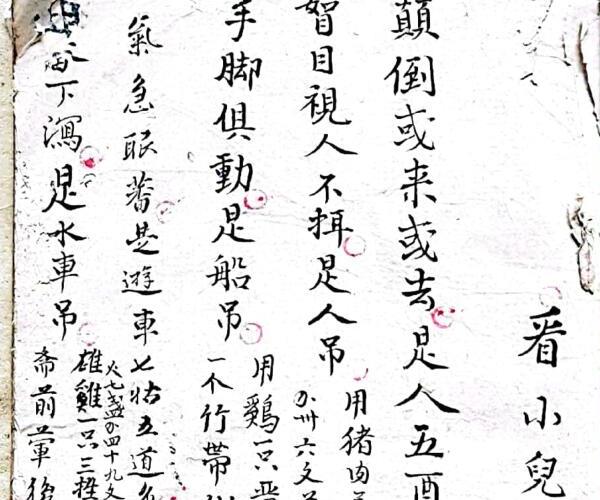 看小兒
顛倒或来或去是人五酉
智目視人不揖是人吊
用猪肉
卅六文
手脚俱動是船吊
用鷄一只
一个竹帶
氣急眼蕃是遊車
七帖五道
下瀉是水車吊
火七盞分四十九文
雄雞一只三牲
斋前葷後